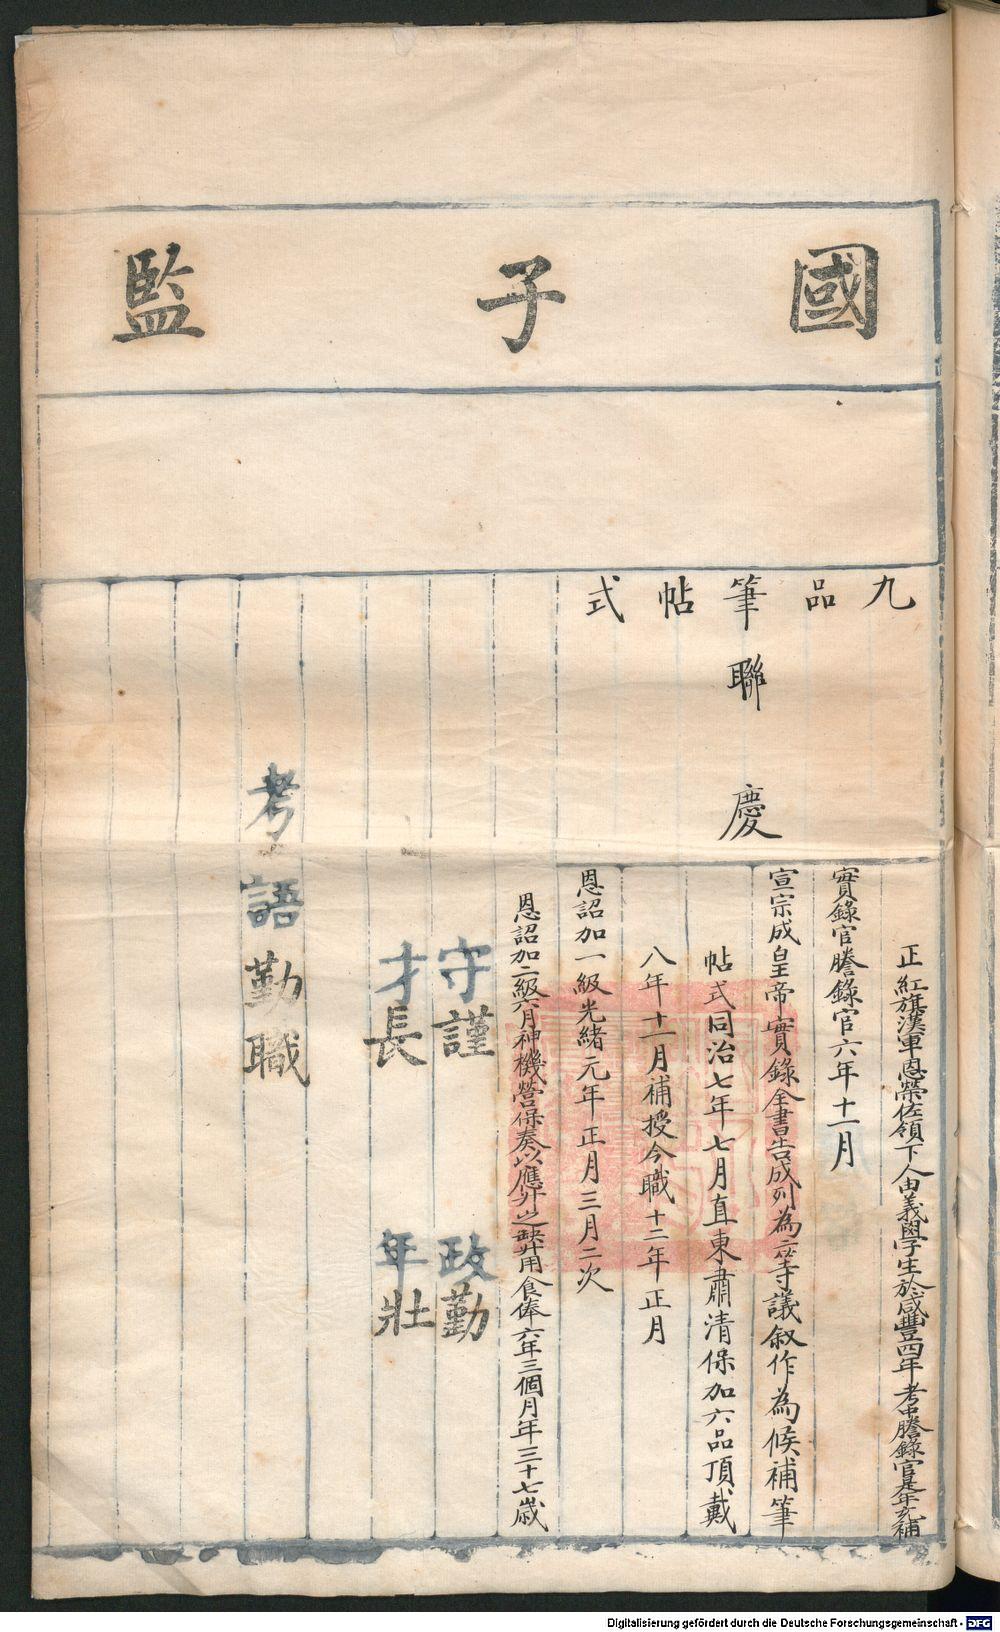 國子監
九品筆帖式
聯慶
正紅旗漢軍恩榮佐領下人由義學生於咸豐四年考中謄錄官是年充補
實錄官謄錄官六年十一月
宣宗成皇帝實錄全書告成列為二等議叙作為候補筆
帖式同治七年七月直東肅清保加六品頂戴
八年十一月補授今職十二年正月
恩詔加一級光緒元年正月三月二次
恩詔加二級六月神機營保奏以應升之缺升用食俸六年三個月年三十七歲
守謹 政勤
才長 年壯
考語勤職
Digitalisierung gefördert durch die Deutsche Forschungsgemeinschaft - DFG